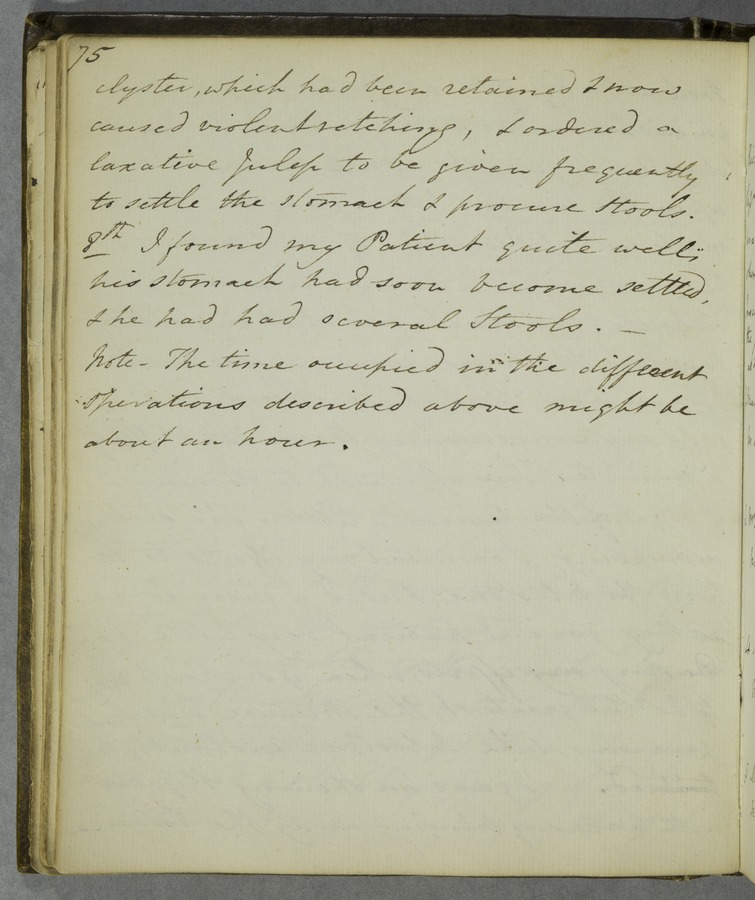 75
clyster, which had been retained & now
caused violent retching, & ordered a
laxative Julep to be given frequently
to settle the stomach & procure stools.
8th I found my Patient quite well;
his stomach had soon become settled,
& he had had several Stools. —
Note - The time occupied in the different
operations described above might be
about an hour.